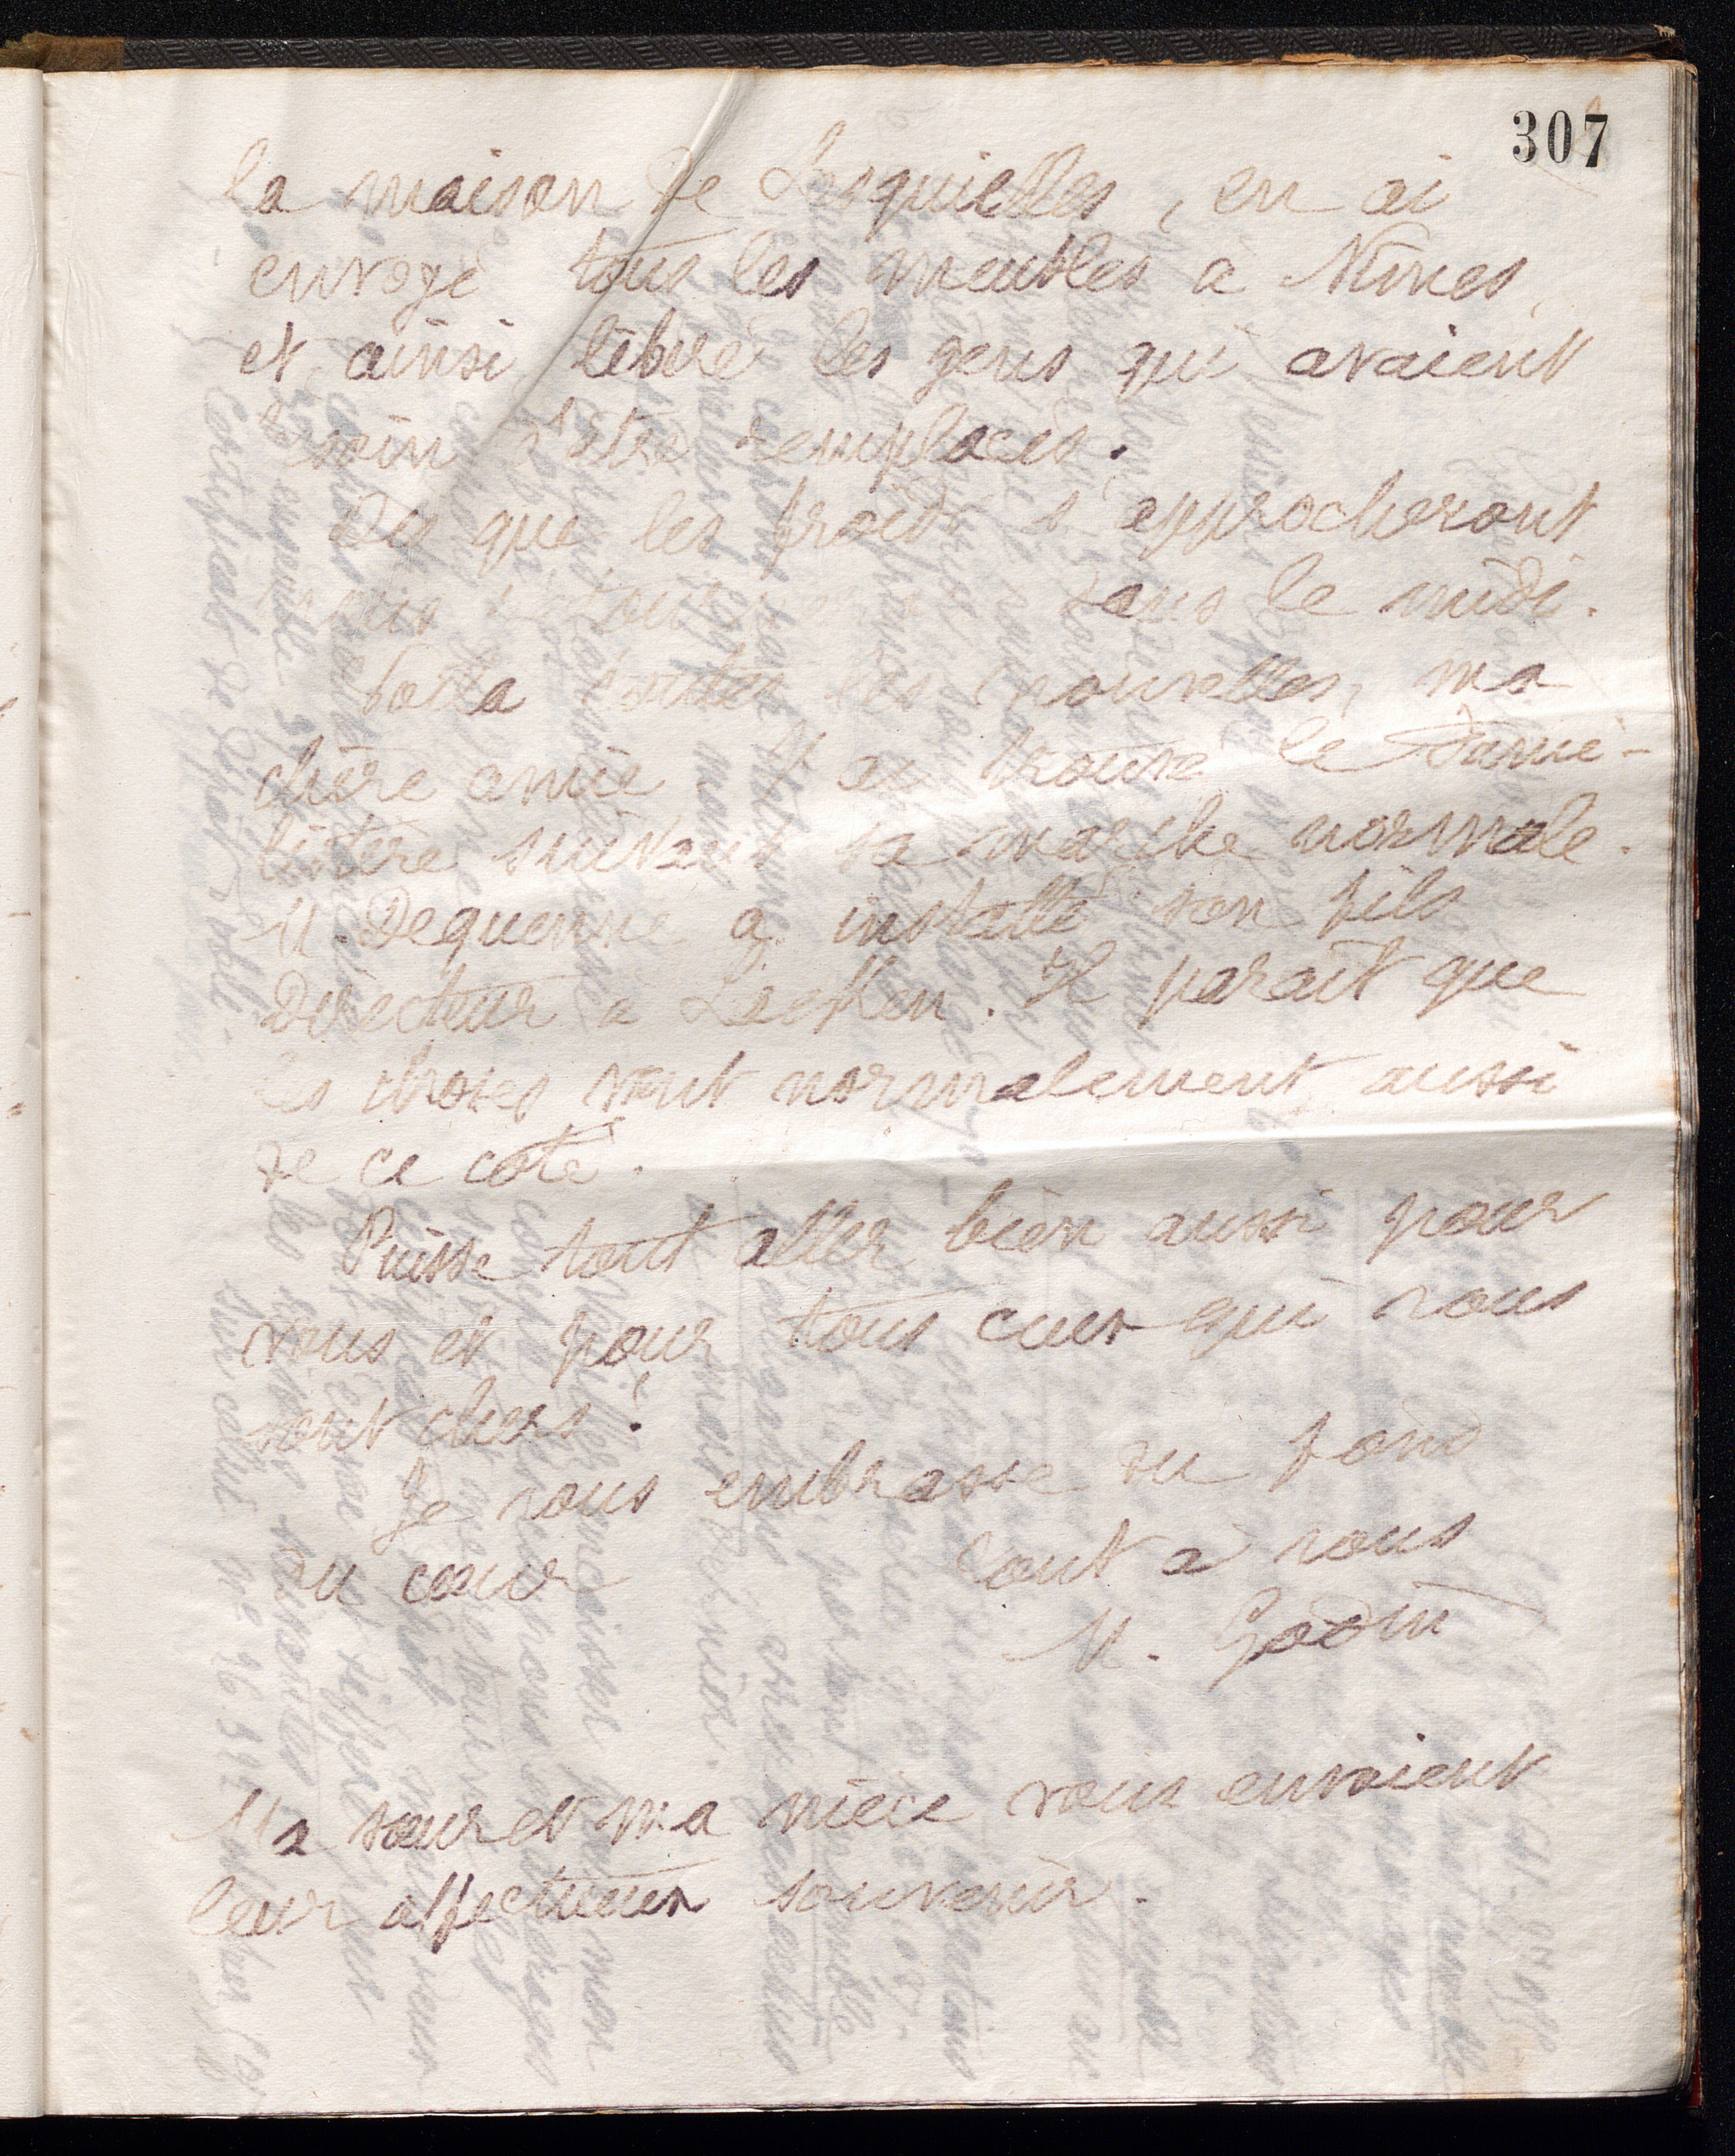 307
la maison de Lesquielles, en ai
envoyé tous les meubles à Nîmes,
et ainsi libéré les gens qui avaient
besoin d'être remplacés.
Dès que les froids s'approcheront
nous dans le midi.
Voilà toutes les nouvelles, ma
chère amie. J'ai trouvé le Fami-
listère suivant sa marche normale.
M. Dequenne a installé son fils
Directeur à Laeken. Il parait que
les choses vont normalement aussi
de ce côté.
Puisse tout aller bien aussi pour
vous et pour tous ceux qui vous
sont chers!
Je vous embrasse du fond
du cœur
Tout à vous
M. Godin
Ma sœur et ma nièce vous envoient
leur affectueux souvenir.